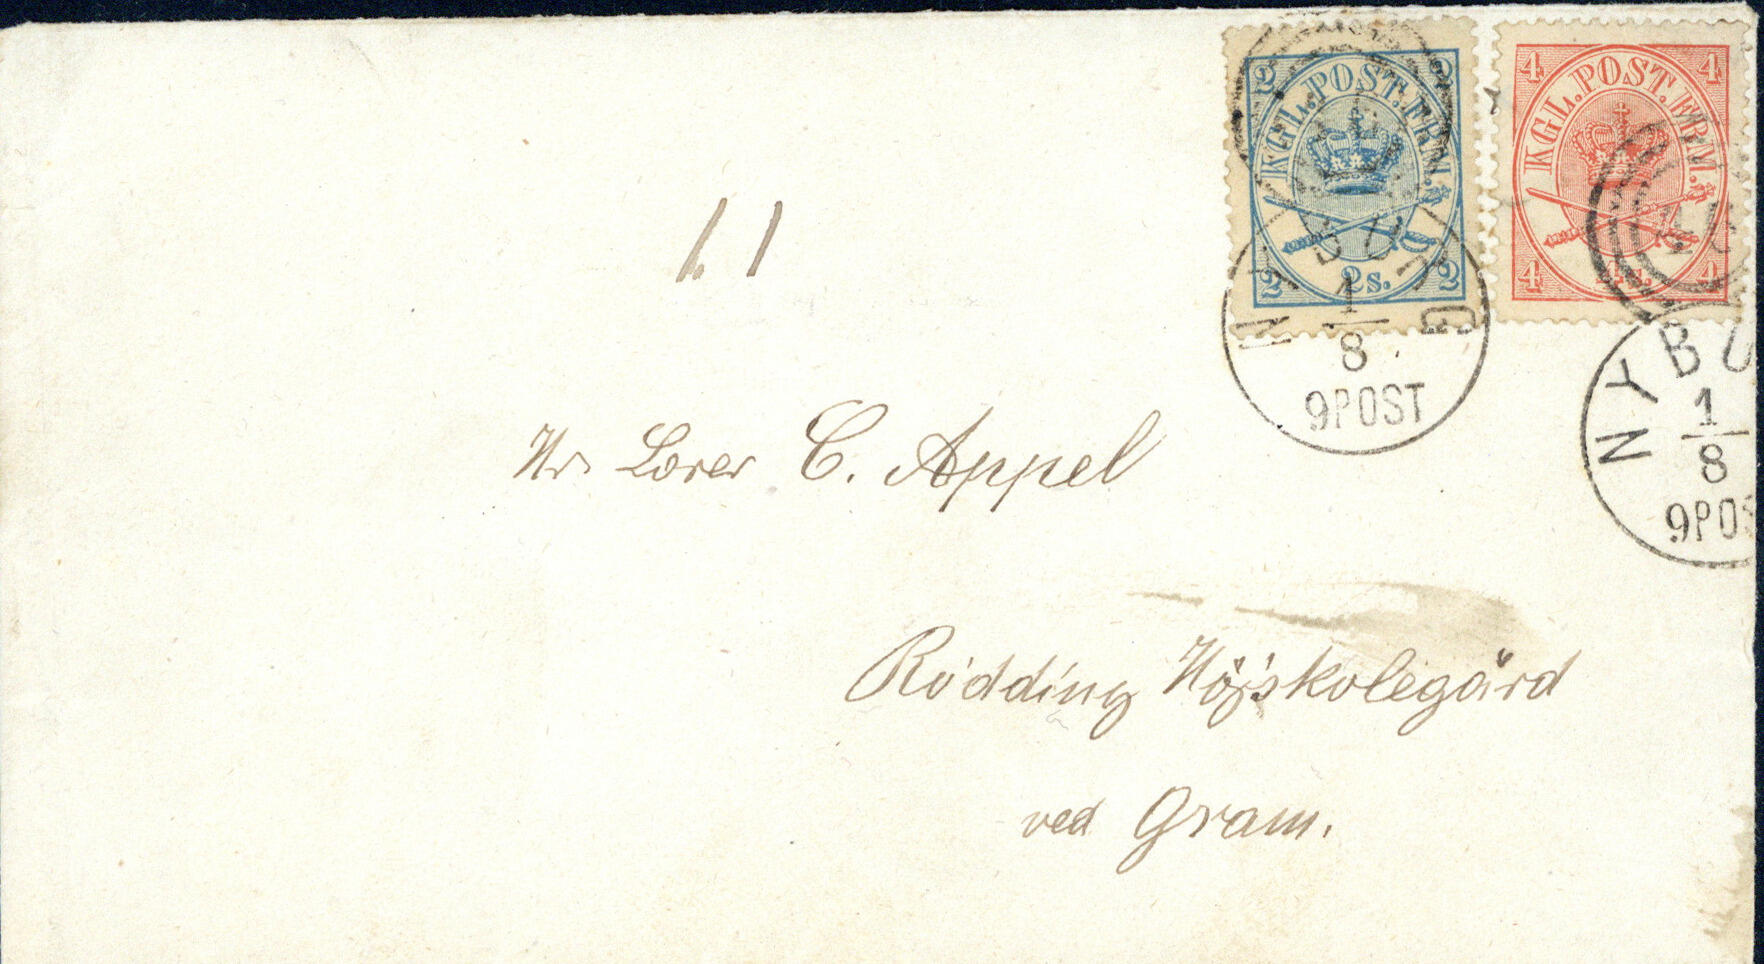 2 2
KGL. POST. FRM.
2 2s. 2
4 4
KGL. POST. FRM.
4 4s. 4
NYBORG
1
8
9POST
NYBO
1
8
9POS
11
Hr. Lærer C. Appel
Rödding Höjskolegård
ved Gram.